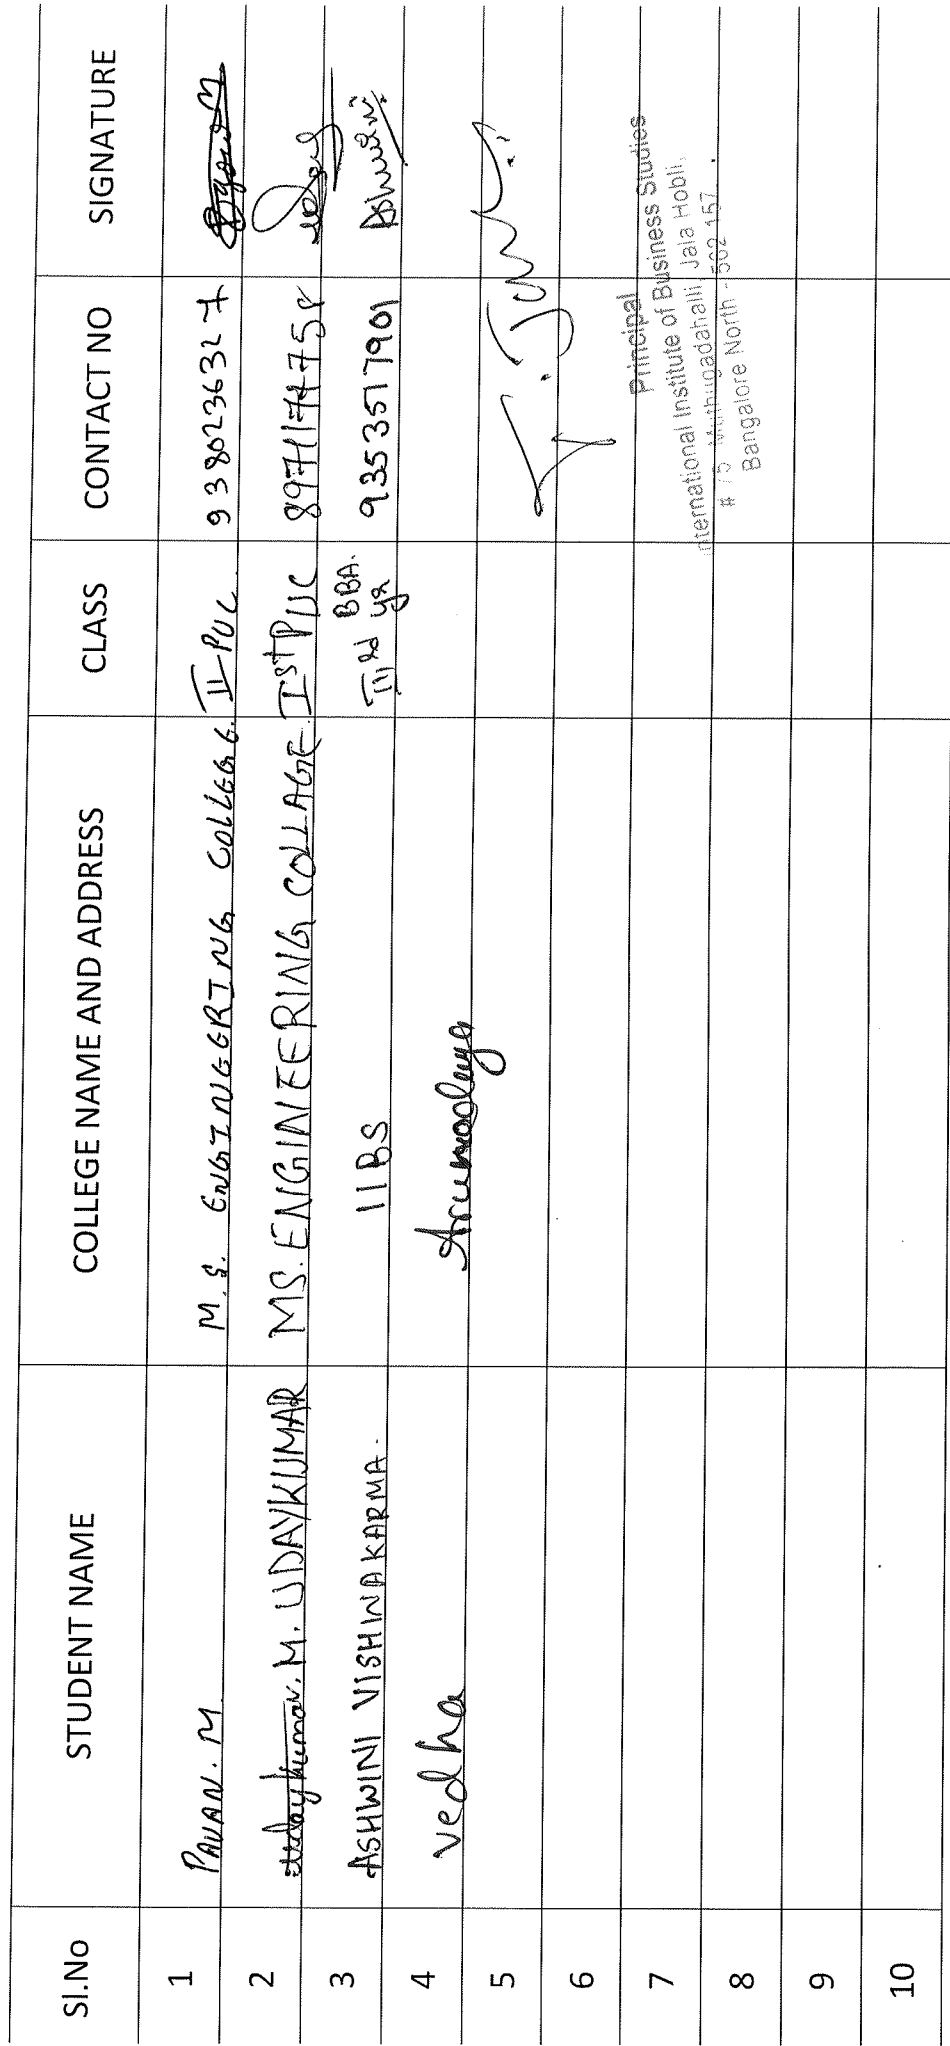 Sl.No STUDENT NAME COLLEGE NAME AND ADDRESS CLASS CONTACT NO SIGNATURE
1 PAVAN.M M.S. ENGINEERING COLLEGE II PUC 9380236327
2 udaykumar. M. UDAYKUMAR MS. ENGINEERING COLLAGE. Ist PUC
3 ASHWINI VISHWAKARMA. IIBS IIIrd BBA. yr 9353517901 Ashwini
4 vedha Arunodaya
5
6
7
8
9
10
Principal
nternational Institute of Business Studies
# 75 Muthugadahalli, Jala Hobli,
Bangalore North - 562 157.